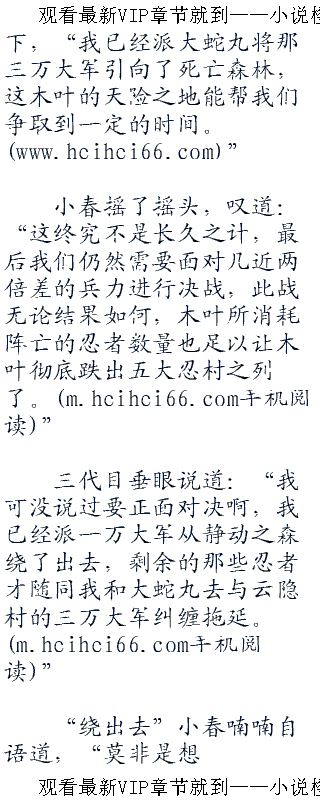 观看最新VIP章节就到——小说
下，“我已经派大蛇丸将那
三万大军引向了死亡森林，
这木叶的天险之地能帮我们
争取到一定的时间。
(www.hcihci66.com)”
小春摇了摇头，叹道：
“这终究不是长久之计，最
后我们仍然需要面对几近两
倍差的兵力进行决战，此战
无论结果如何，木叶所消耗
阵亡的忍者数量也足以让木
叶彻底跌出五大忍村之列
了。(m.hcihci66.com手机阅
读)”
三代目垂眼说道：“我
可没说过要正面对决啊，我
已经派一万大军从静动之森
绕了出去，剩余的那些忍者
才随同我和大蛇丸去与云隐
村的三万大军纠缠拖延。
(m.hcihci66.com手机阅
读)”
“绕出去”小春喃喃自
语道，“莫非是想
观看最新VIP章节就到——小说